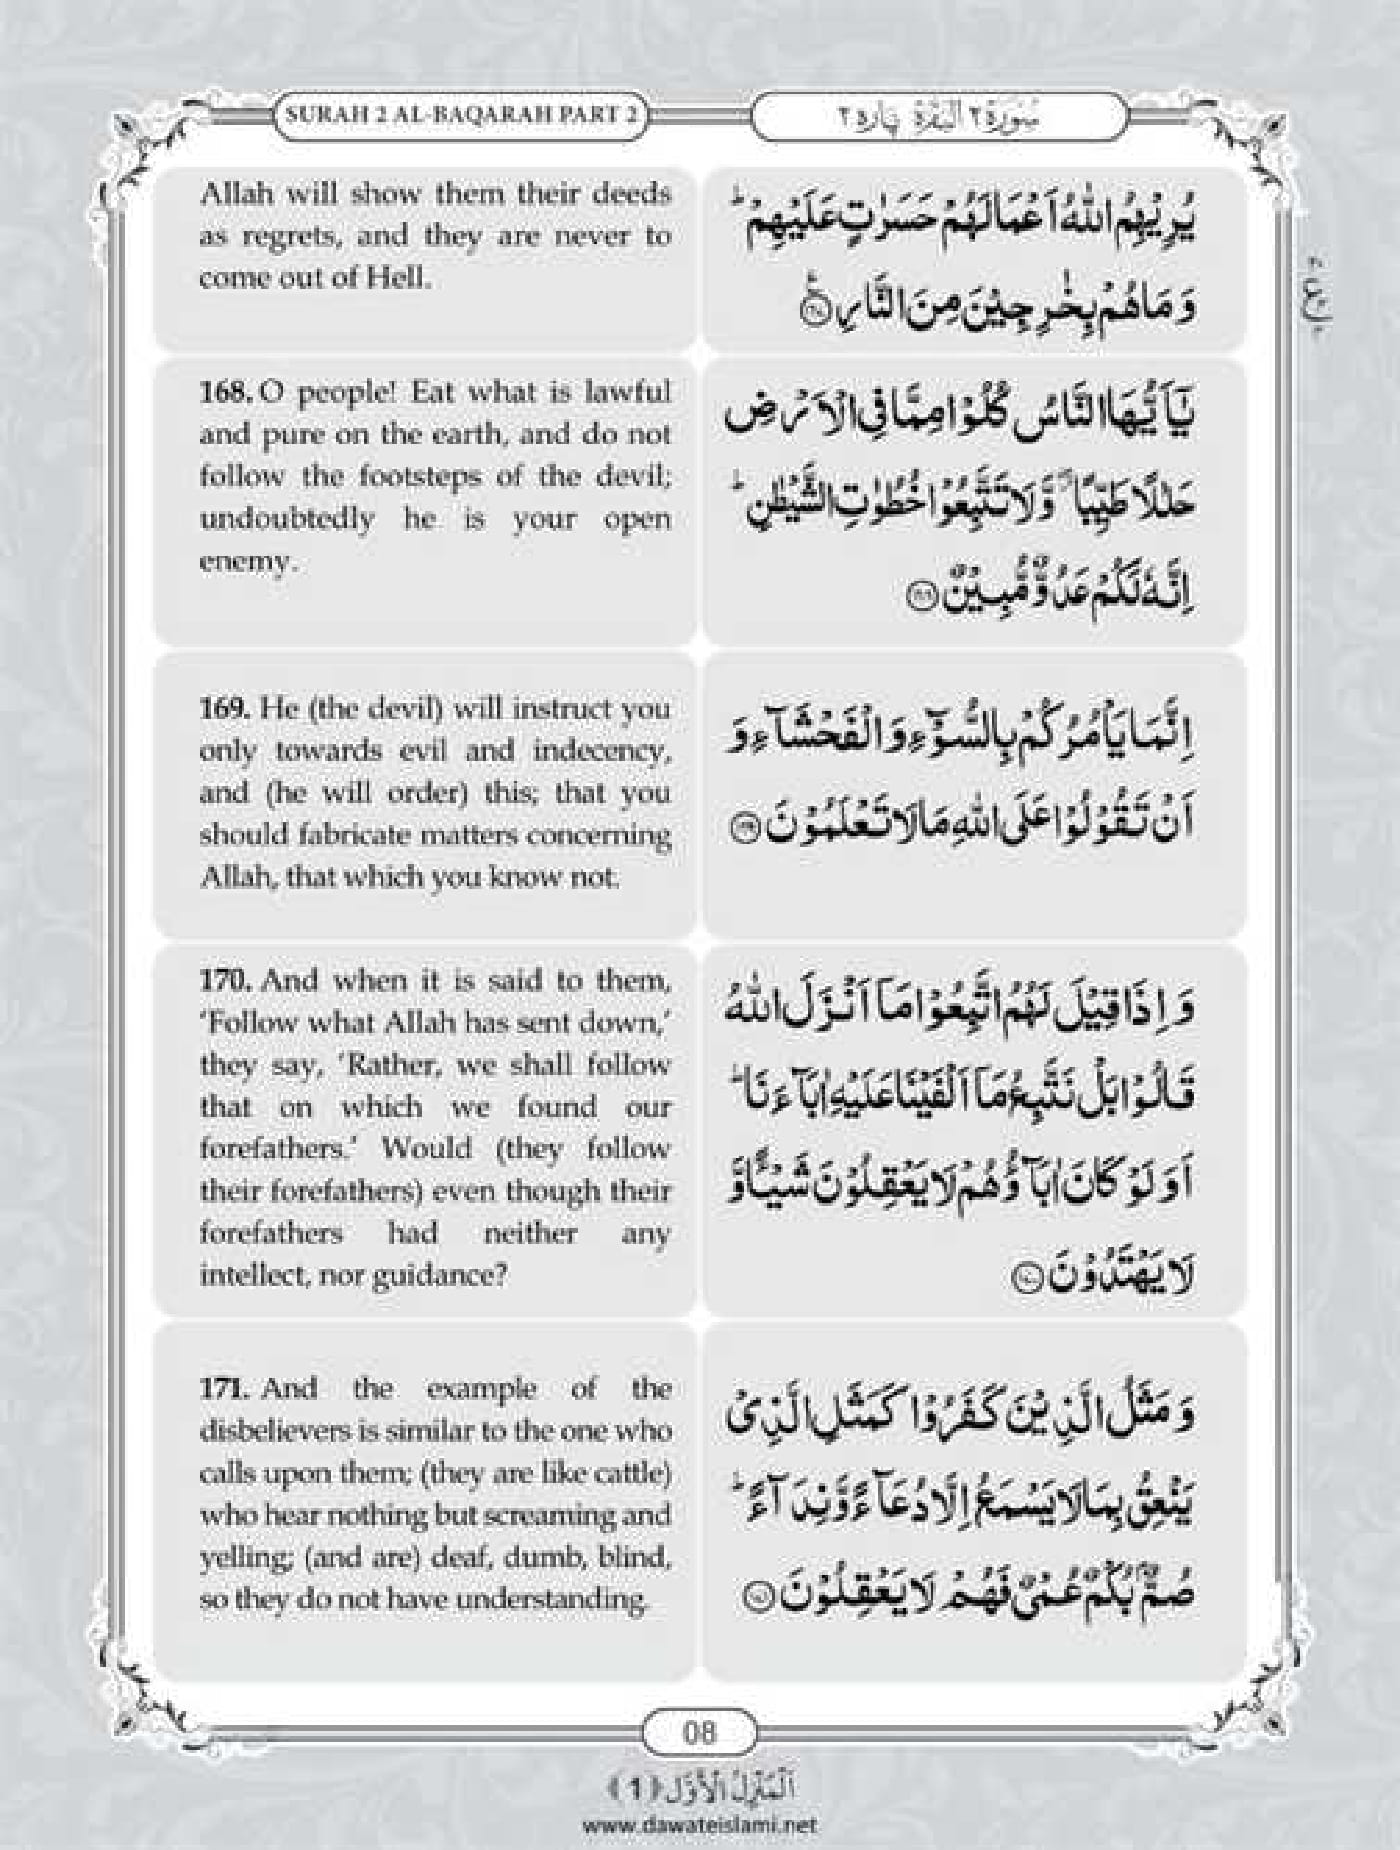 SURAH 2 AL-BAQARAH PART 2
سُوْرَةُ ٢ الْبَقَرَة پارہ ٢
Allah will show them their deeds
as regrets, and they are never to
come out of Hell.
يُرِيْهِمُ اللّٰهُ اَعْمَالَهُمْ حَسَرٰتٍ عَلَيْهِمْ ؕ
وَ مَا هُمْ بِخٰرِجِيْنَ مِنَ النَّارِ
168. O people! Eat what is lawful
and pure on the earth, and do not
follow the footsteps of the devil;
undoubtedly he is your open
enemy.
يٰۤاَيُّهَا النَّاسُ كُلُوْا مِمَّا فِي الْاَرْضِ
حَلٰلًا طَيِّبًا ۖ٘ وَّ لَا تَتَّبِعُوْا خُطُوٰتِ الشَّيْطٰنِ ؕ
اِنَّهٗ لَكُمْ عَدُوٌّ مُّبِيْنٌ ﴿۱۶۸﴾
169. He (the devil) will instruct you
only towards evil and indecency,
and (he will order) this; that you
should fabricate matters concerning
Allah, that which you know not.
اِنَّمَا يَاْمُرُكُمْ بِالسُّوْٓءِ وَ الْفَحْشَآءِ وَ
اَنْ تَقُوْلُوْا عَلَى اللّٰهِ مَا لَا تَعْلَمُوْنَ ﴿۱۶۹﴾
170. And when it is said to them,
‘Follow what Allah has sent down,’
they say, ‘Rather, we shall follow
that on which we found our
forefathers.’ Would (they follow
their forefathers) even though their
forefathers had neither any
intellect, nor guidance?
وَ اِذَا قِيْلَ لَهُمُ اتَّبِعُوْا مَاۤ اَنْزَلَ اللّٰهُ
قَالُوْا بَلْ نَتَّبِعُ مَاۤ اَلْفَيْنَا عَلَيْهِ اٰبَآءَنَا ؕ
اَوَ لَوْ كَانَ اٰبَآؤُهُمْ لَا يَعْقِلُوْنَ شَيْـًٔا وَّ
لَا يَهْتَدُوْنَ ﴿۱۷۰﴾
171. And the example of the
disbelievers is similar to the one who
calls upon them; (they are like cattle)
who hear nothing but screaming and
yelling; (and are) deaf, dumb, blind,
so they do not have understanding.
وَ مَثَلُ الَّذِيْنَ كَفَرُوْا كَمَثَلِ الَّذِيْ
يَنْعِقُ بِمَا لَا يَسْمَعُ اِلَّا دُعَآءً وَّ نِدَآءً ؕ
صُمٌّۢ بُكْمٌ عُمْيٌ فَهُمْ لَا يَعْقِلُوْنَ ﴿۱۷۱﴾
08
اَلْمَنْزِلُ الْاَوَّل (1)
www.dawateislami.net